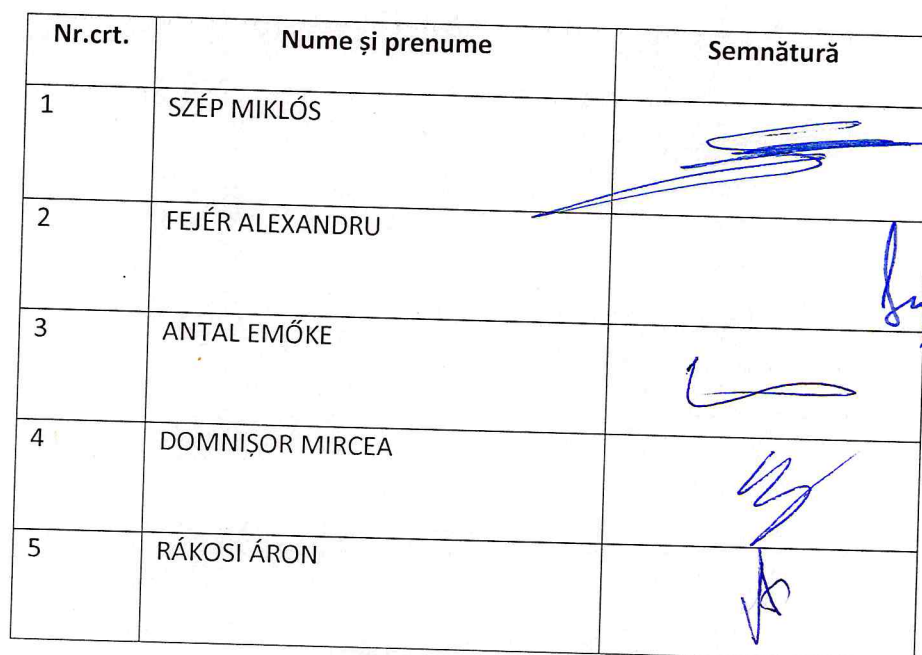 Nr.crt. Nume și prenume Semnătură
1 SZÉP MIKLÓS
2 FEJÉR ALEXANDRU
3 ANTAL EMŐKE
4 DOMNIȘOR MIRCEA
5 RÁKOSI ÁRON